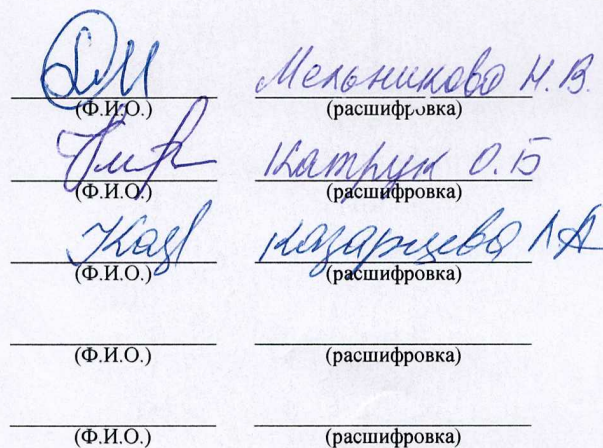 Мельникова Н.В.
(Ф.И.О.) (расшифровка)
Катрук О.Б
(Ф.И.О.) (расшифровка)
Каз Казарцева Л А
(Ф.И.О.) (расшифровка)
(Ф.И.О.) (расшифровка)
(Ф.И.О.) (расшифровка)